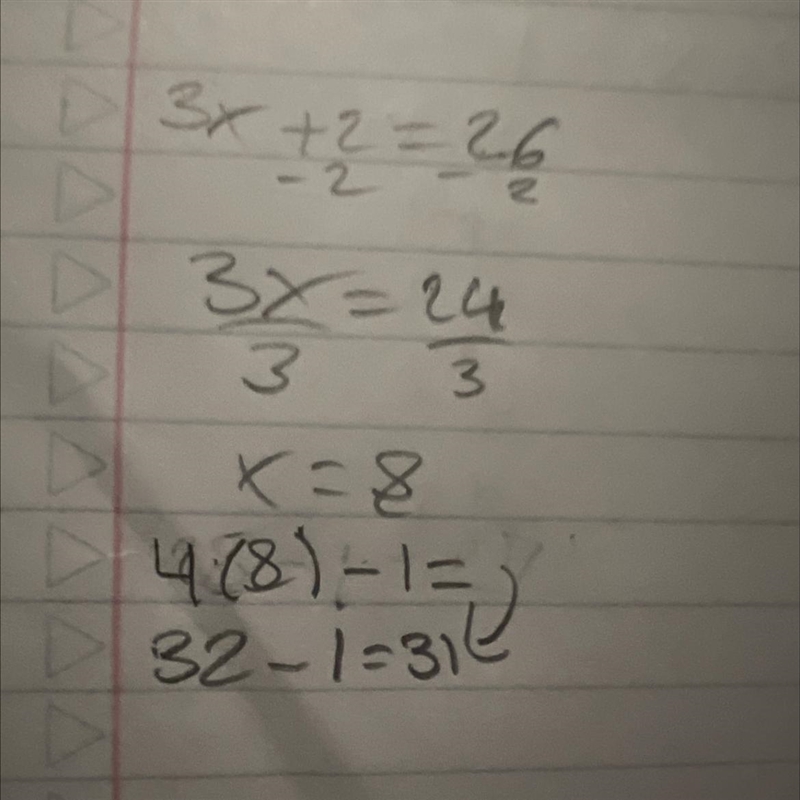 3x + 2 = 26
- 2 - 2
3x = 24
3 3
x = 8
4(8) - 1 =
32 - 1 = 31